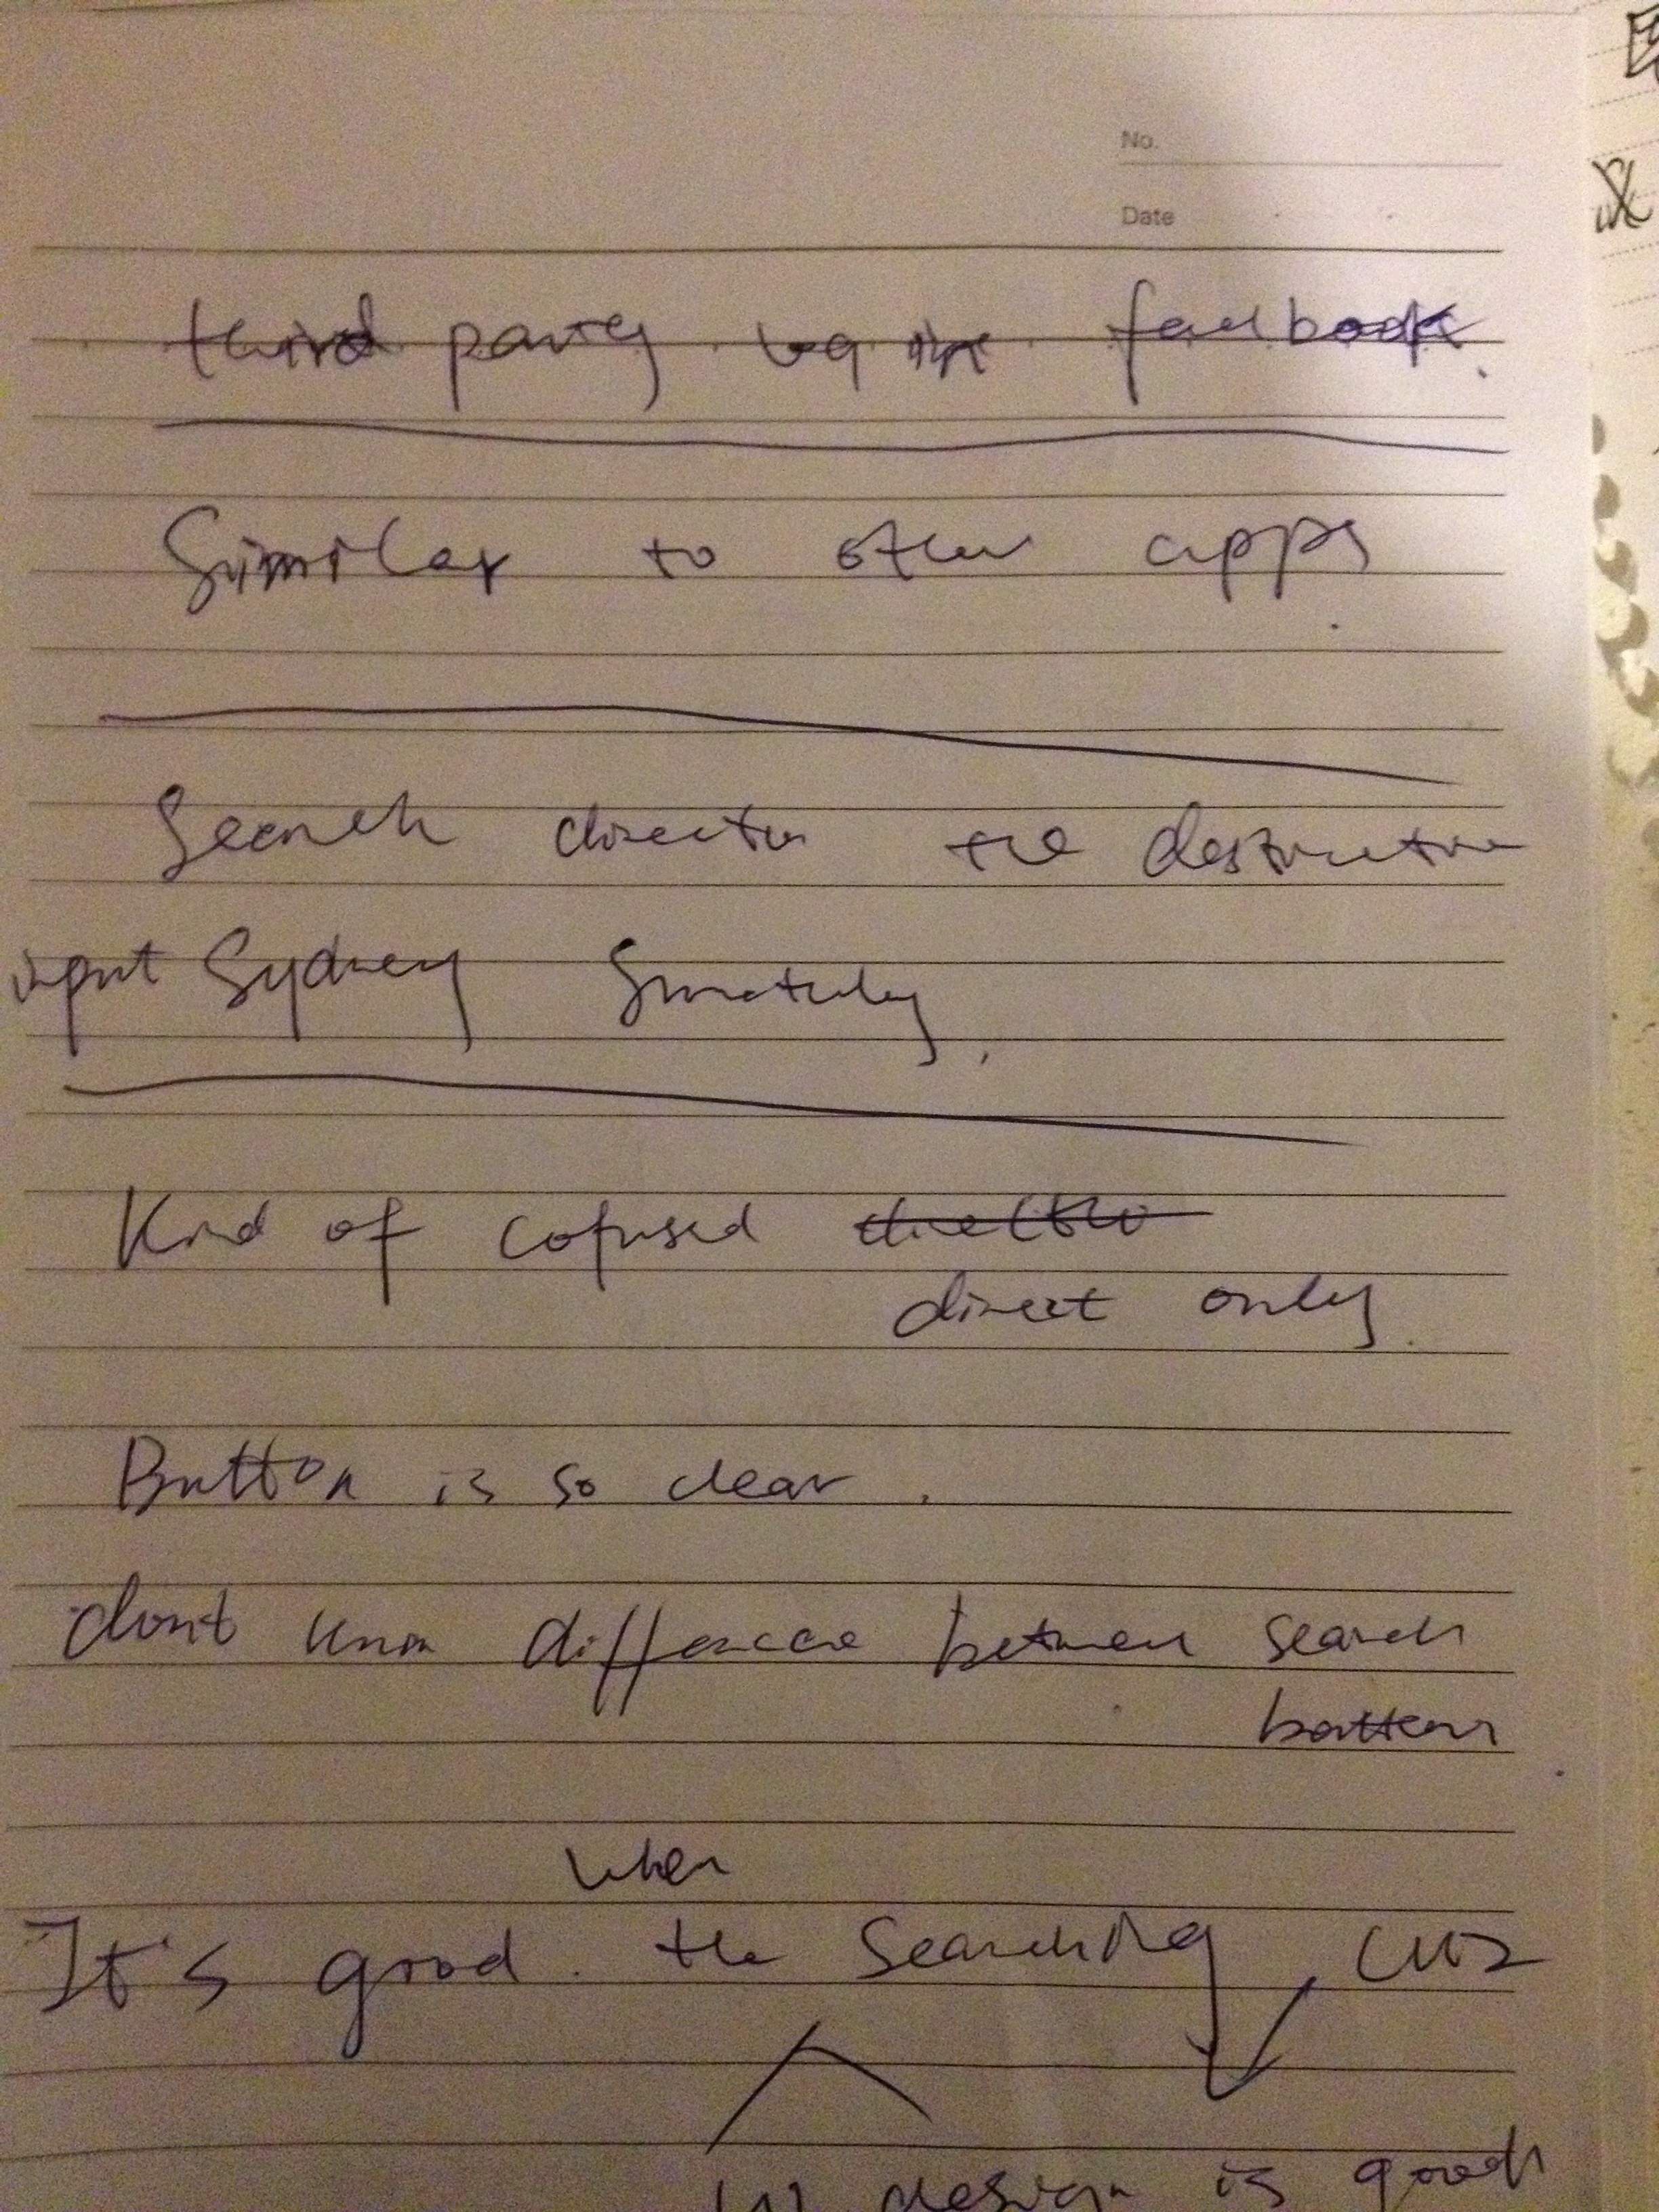 No.
Date
third party facebook.
Similar to other apps
Search the
input Sydney
Kind of cofused
direct only.
Button is so clear.
don't know difference between search
when
It's good. the searching, cuz
design is good